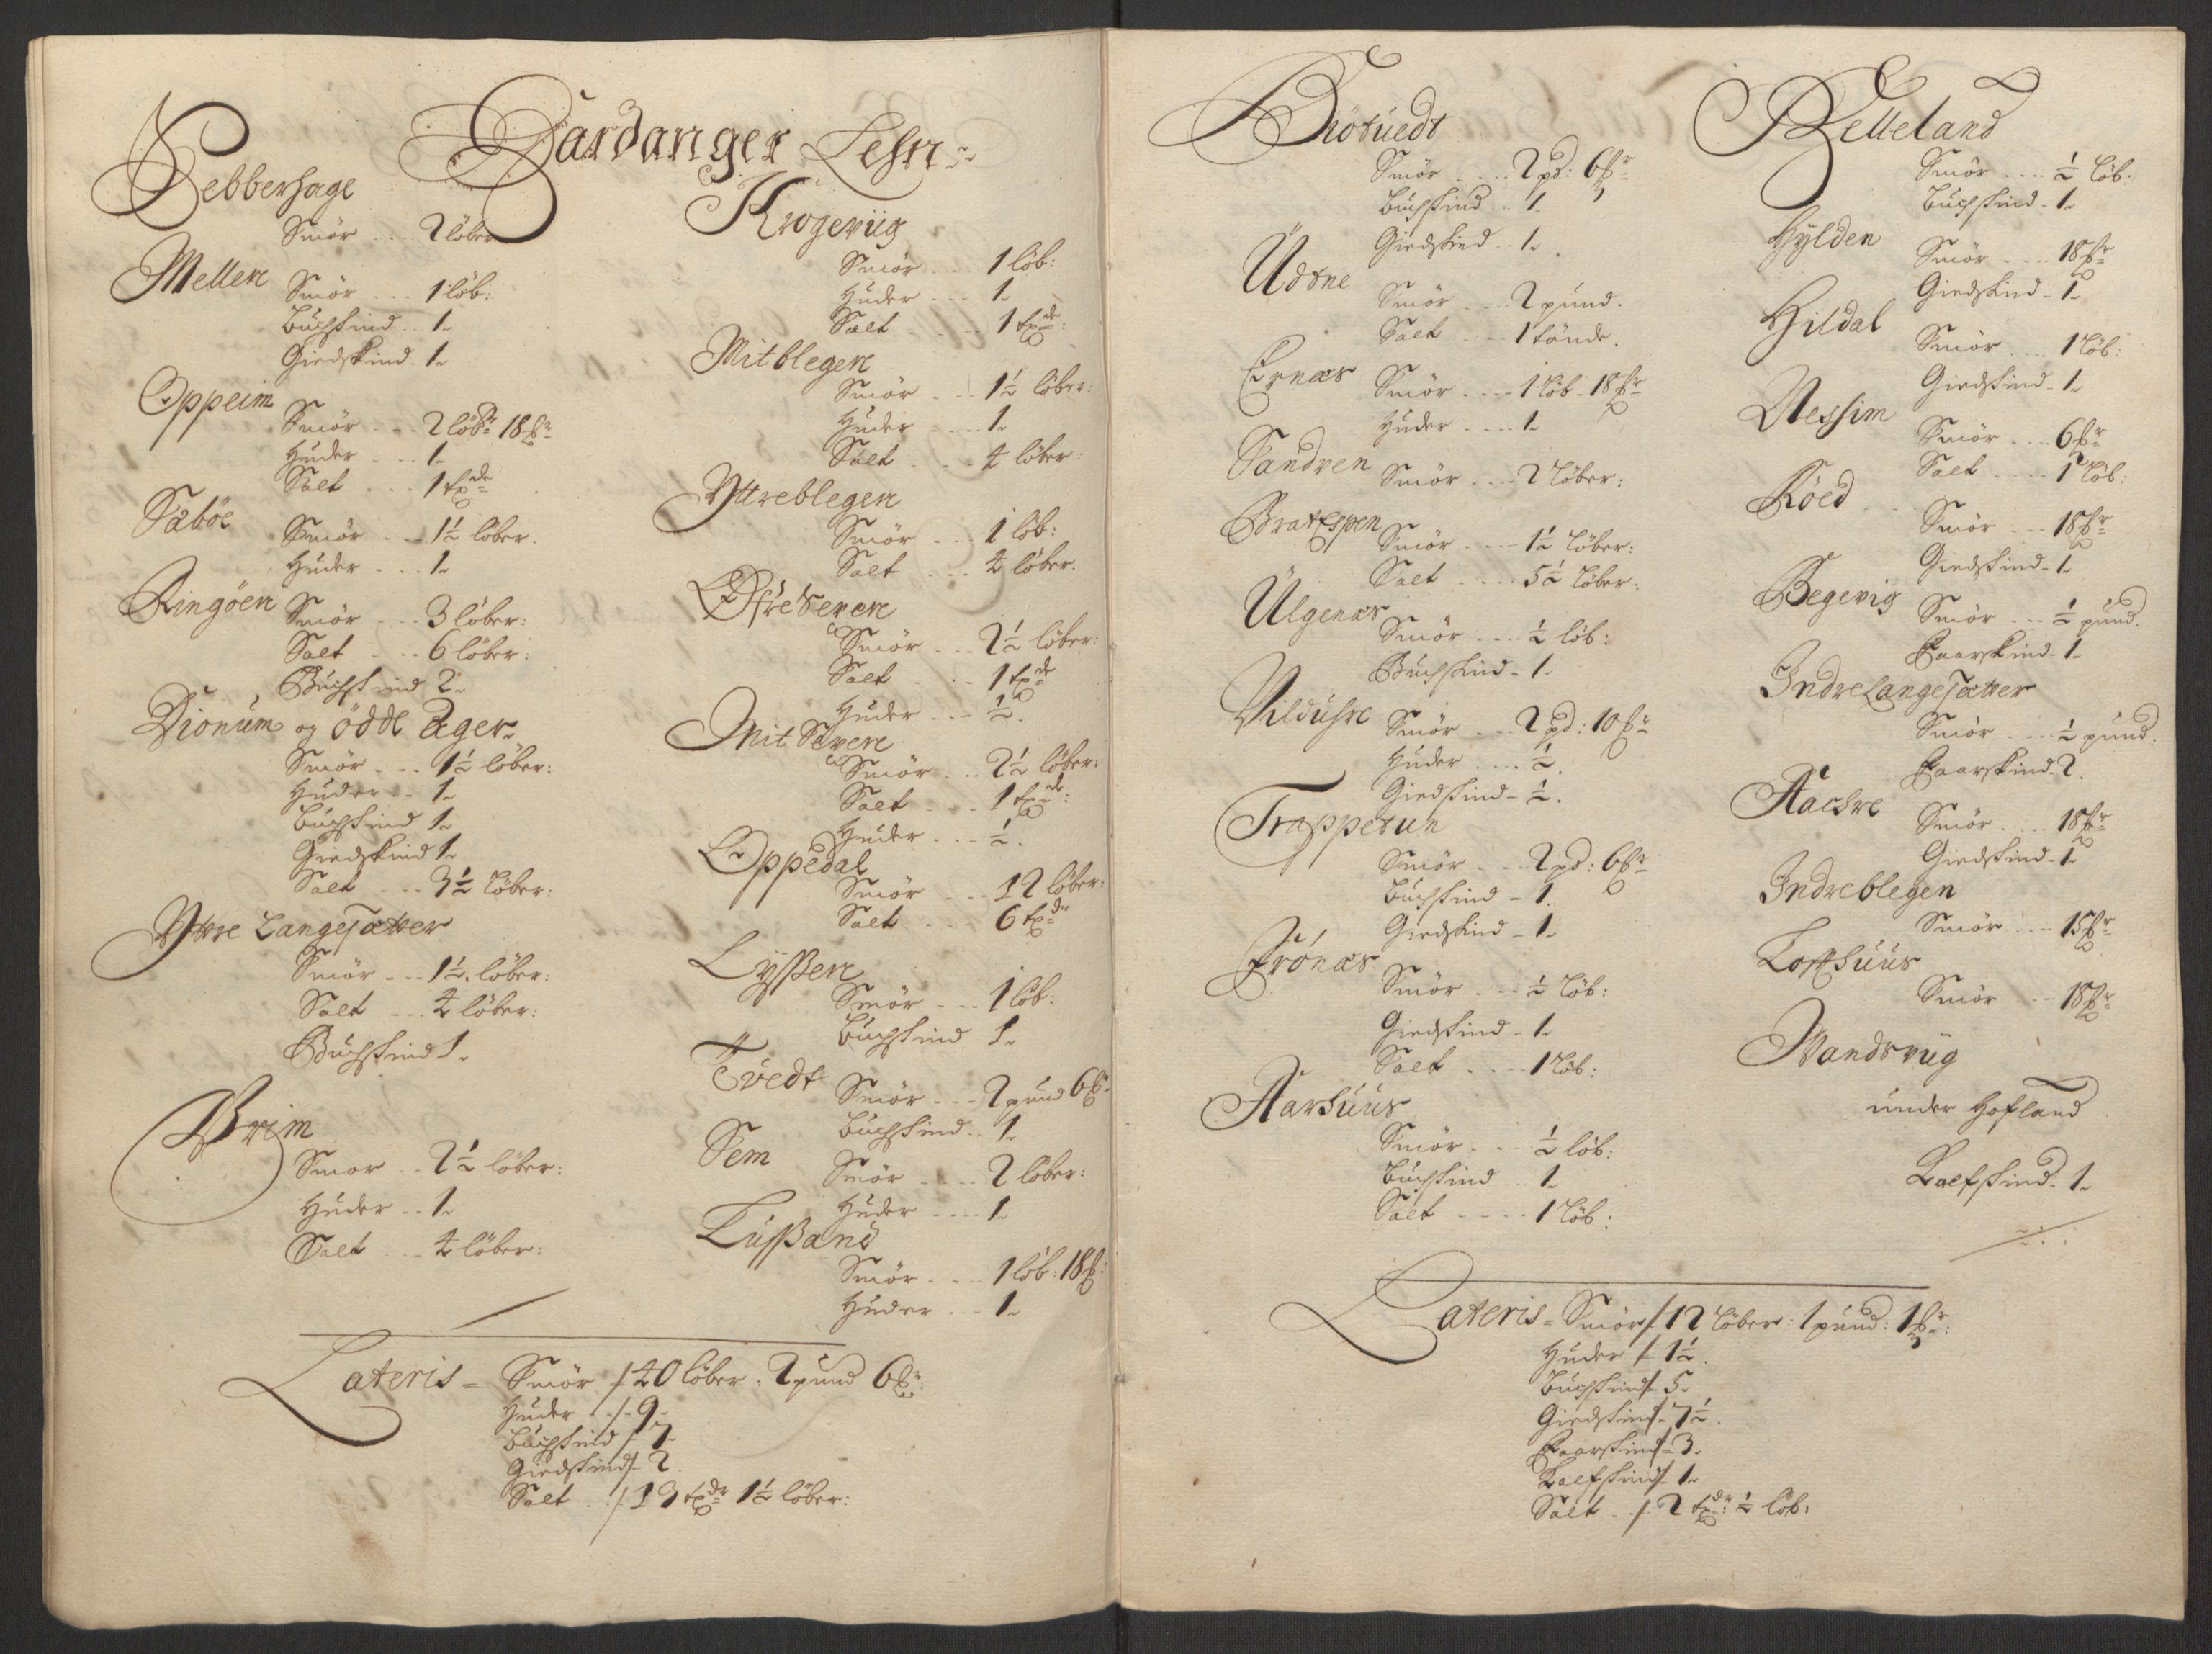 Hardanger Lehn
Pebberhage
Smör 2 löber
Mellen
Smör 1 löb:
Buchskind 1
Giedskind 1
Oppeim
Smör 2 löb 18
Huder 1
Salt 1 tde
Säböe
Smör 1½ löber.
Huder 1
Ringöen
Smör 3 löber:
Salt 6 löber:
Buchskind 2
Dionúm og ödde Ager
Smör 1½ löber:
Huder 1
Buchskind 1
Giedskind 1
Salt 3½ löber:
Yttre Langesætter
Smör 1½ löber:
Salt 4 löber:
Buchskind 1
Brim
Smor 2½ löber:
Huder 1
Salt 4 löber:
Krogeviig
Smör 1 löb:
Huder 1
Salt 1 tde:
Mitblegen
Smör 1½ löber:
Huder 1
Salt 4 löber:
Yttreblegen
Smör 1 löb:
Salt 4 löber.
Øfre Seven
Smör 2½ löber:
Salt 1 tde
Huder ½.
Mit Seven
Smör 2½ löber:
Salt 1 tde:
Huder ½.
Oppedal
Smör 12 löber:
Salt 6 tdr
Lyssen
Smör 1 löb:
Buchskind 1
Tvedt
Smör 2 pund 6
Buchskind 1
Sem
Smör 2 löber:
Huder 1
Lussand
Smör 1 löb: 18
Huder 1
Lateris Smör / 40 löber: 2 pund 6
Huder / 9
Buchskind / 7
Giedskind / 2
Salt / 13 tdr 1½ löber:
Smör 2 pd: 6
Buchskind 1
Giedskind 1
Udtne
Smör 2 pund.
Salt 1 tönde.
Ernæs
Smör 1 löb 18
Huder 1
Sandven
Smör 2 löber:
Bratespen
Smör 1½ löber:
Salt 5½ löber:
Ulgenæs
Smör ½ löb:
Buchskind 1
Vilduhre
Smör 2 pd: 10
Huder ½.
Giedskind ½.
Trappetun
Smör 2 pd: 6
Buchskind 1.
Giedskind 1
Frónæs
Smör ½ löb:
Giedskind 1
Salt 1 löb:
Aarhuus
Smör ½ löb:
Buchskind 1
Salt 1 löb:
Belleland
Smör ½ löb:
Buchskind 1
Hylden
Smör 18
Giedskind 1
Hildal
Smör 1 löb:
Giedskind 1
Nessim
Smör 6
Salt 1 löb:
Röed
Smör 18
Giedskind 1
Begevig
Smör ½ pund.
Faarskind 1
Indre Langesætter
Smör ½ pund.
Faarskind 2.
Aachre
Smör 18
Giedskind 1
Indreblegen
Smör 15
Lofthuus
Smör 18
Mandrviig
under Hofland
Kalfskind 1
Lateris Smör / 12 löber: 1 pund: 1
Huder / 1½.
Buchskind / 5
Giedskind / 7½.
Faarskind / 3
Kalfskind / 1
Salt / 2 tdr: ½ löb: